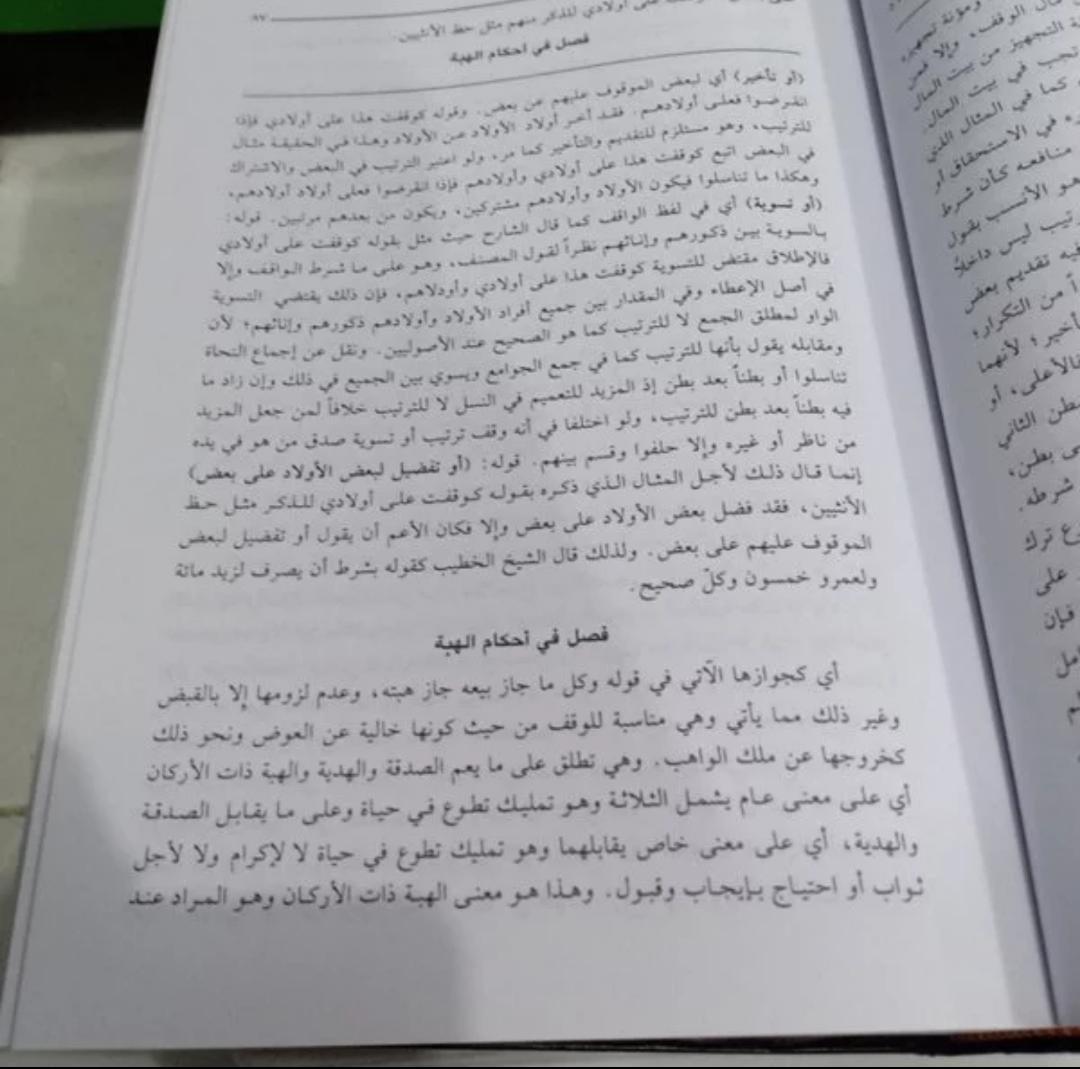 ٩٧
أولادي للذكر منهم مثل حظ الأنثيين.
فصل في أحكام الهبة
(أو تأخير) أي لبعض الموقوف عليهم عن بعض. وقوله كوقفت هذا على أولادي فإذا
انقرضوا فعلى أولادهم. فقد أخر أولاد الأولاد عن الأولاد وهذا في الحقيقة مثال
للترتيب، وهو مستلزم للتقديم والتأخير كما مر، ولو اعتبر الترتيب في البعض والاشتراك
في البعض اتبع كوقفت هذا على أولادي وأولادهم فإذا انقرضوا فعلى أولاد أولادهم،
وهكذا ما تناسلوا فيكون الأولاد وأولادهم مشتركين، ويكون من بعدهم مرتبين. قوله:
(أو تسوية) أي في لفظ الواقف كما قال الشارح حيث مثل بقوله كوقفت على أولادي
بالسوية بين ذكورهم وإناثهم نظراً لقول المصنف، وهو على ما شرط الواقف وإلا
فالإطلاق مقتض للتسوية كوقفت هذا على أولادي وأودلاهم، فإن ذلك يقتضي التسوية
في أصل الإعطاء وفي المقدار بين جميع أفراد الأولاد وأولادهم ذكورهم وإناثهم؛ لأن
الواو لمطلق الجمع لا للترتيب كما هو الصحيح عند الأصوليين. ونقل عن إجماع النحاة
ومقابله يقول بأنها للترتيب كما في جمع الجوامع ويسوي بين الجميع في ذلك وإن زاد ما
تناسلوا أو بطناً بعد بطن إذ المزيد للتعميم في النسل لا للترتيب خلافاً لمن جعل المزيد
فيه بطناً بعد بطن للترتيب، ولو اختلفا في أنه وقف ترتيب أو تسوية صدق من هو في يده
من ناظر أو غيره وإلا حلفوا وقسم بينهم. قوله: (أو تفضيل لبعض الأولاد على بعض)
إنما قال ذلك لأجل المثال الذي ذكره بقوله كوقفت على أولادي للذكر مثل حظ
الأنثيين، فقد فضل بعض الأولاد على بعض وإلا فكان الأعم أن يقول أو تفضيل لبعض
الموقوف عليهم على بعض. ولذلك قال الشيخ الخطيب كقوله بشرط أن يصرف لزيد مائة
ولعمرو خمسون وكلّ صحيح.
فصل في أحكام الهبة
أي كجوازها الآتي في قوله وكل ما جاز بيعه جاز هبته، وعدم لزومها إلا بالقبض
وغير ذلك مما يأتي وهي مناسبة للوقف من حيث كونها خالية عن العوض ونحو ذلك
كخروجها عن ملك الواهب. وهي تطلق على ما يعم الصدقة والهدية والهبة ذات الأركان
أي على معنى عام يشمل الثلاثة وهو تمليك تطوع في حياة وعلى ما يقابل الصدقة
والهدية، أي على معنى خاص يقابلهما وهو تمليك تطوع في حياة لا لإكرام ولا لأجل
ثواب أو احتياج بإيجاب وقبول. وهذا هو معنى الهبة ذات الأركان وهو المراد عند
ومؤنة تجهيزه
قال الوقف، وإلا فمن
التجهيز من بيت المال
تجب في بيت المال.
كما في المثال الذي
في الاستحقاق أو
منافعه كأن شرط
هو الأنسب بقول
ليس داخلاً
فيه تقديم بعض
من التكرار؛
لأنهما
فالأعلى، أو
الثاني
بطن،
شرطه.
ترك
على
فإن